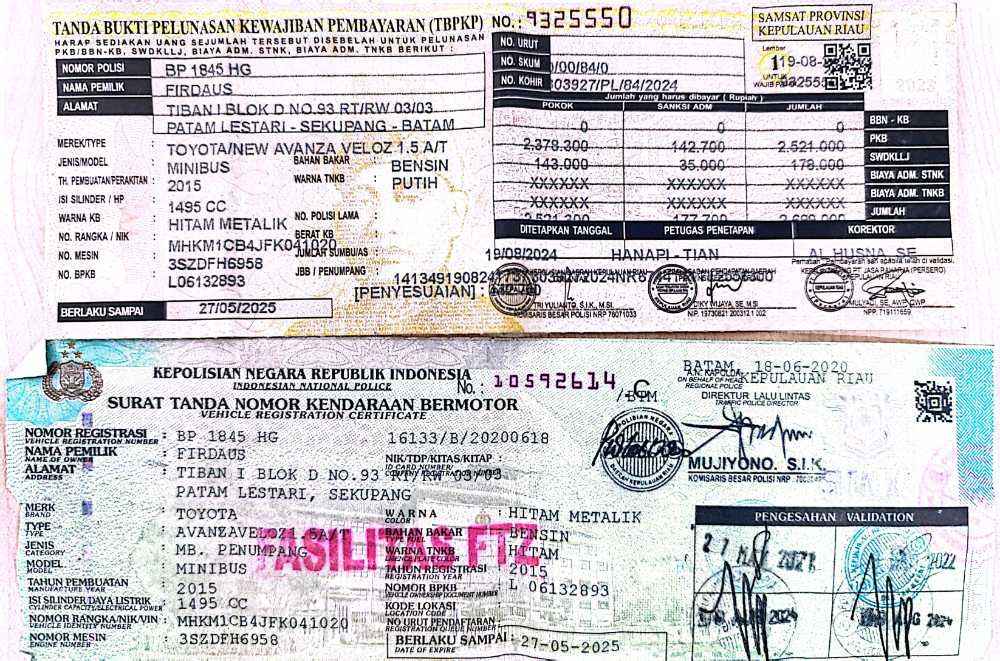 TANDA BUKTI PELUNASAN KEWAJIBAN PEMBAYARAN (TBPKP) NO.: 9325550
HARAP SEDIAKAN UANG SEJUMLAH TERSEBUT DISEBELAH UNTUK PELUNASAN
PKB/BBN-KB, SWDKLLJ, BIAYA ADM. STNK, BIAYA ADM. TNKB BERIKUT :
SAMSAT PROVINSI
KEPULAUAN RIAU
Lember
1
UNTUK
19-08-2
NOMOR POLISI BP 1845 HG
NAMA PEMILIK FIRDAUS
ALAMAT TIBAN I BLOK D NO.93 RT/RW 03/03
PATAM LESTARI - SEKUPANG - BATAM
MEREK/TYPE : TOYOTA/NEW AVANZA VELOZ 1.5 A/T
JENIS/MODEL : MINIBUS
TH. PEMBUATAN/PERAKITAN : 2015
ISI SILINDER / HP : 1495 CC
WARNA KB : HITAM METALIK
NO. RANGKA / NIK : MHKM1CB4JFK041020
NO. MESIN : 3SZDFH6958
NO. BPKB : L06132893
BAHAN BAKAR : BENSIN
WARNA TNKB : PUTIH
NO. POLISI LAMA :
BERAT KB
JUMLAH SUMBU/AS :
JBB / PENUMPANG :
BERLAKU SAMPAI : 27/05/2025
[PENYESUAIAN :
NO. URUT
NO. SKUM /00/84/0
NO. KOHIR 03927/PL/84/2024
Jumlah yang harus dibayar ( Rupiah )
POKOK SANKSI ADM JUMLAH
0 0 0 BBN - KB
2,378,300 142,700 2,521,000 PKB
143,000 35,000 178,000 SWDKLLJ
XXXXXX XXXXXX XXXXXX BIAYA ADM. STNK
XXXXXX XXXXXX XXXXXX BIAYA ADM. TNKB
2,521,300 177,700 2,699,000 JUMLAH
DITETAPKAN TANGGAL PETUGAS PENETAPAN KOREKTOR
19/08/2024 HANAPI - TIAN AL HUSNA, SE
TRI YULIANTO, S.I.K., M.Si
KOMISARIS BESAR POLISI NRP 76071033
DIKY WIJAYA, SE, M.SI
NIP. 19730821 200312 1 002
MULYADI, SE, AWP, CWP
NPP. 719111659
KEPOLISIAN NEGARA REPUBLIK INDONESIA
INDONESIAN NATIONAL POLICE
No. : 10592614 /
SURAT TANDA NOMOR KENDARAAN BERMOTOR
VEHICLE REGISTRATION CERTIFICATE
BATAM, 18-06-2020
A.N. KAPOLDA KEPULAUAN RIAU
ON BEHALF OF HEAD
REGIONAL POLICE
DIREKTUR LALU LINTAS
TRAFFIC POLICE DIRECTOR
MUJIYONO. S.I.K.
KOMISARIS BESAR POLISI NRP
NOMOR REGISTRASI : BP 1845 HG 16133/B/20200618
VEHICLE REGISTRATION NUMBER
NAMA PEMILIK : FIRDAUS
NAME OF OWNER
NIK/TDP/KITAS/KITAP :
ID CARD NUMBER/
ALAMAT : TIBAN I BLOK D NO.93 RT/RW 03/03
ADDRESS
PATAM LESTARI, SEKUPANG
MERK : TOYOTA
BRAND
TYPE : AVANZAVELOZ1.5A/T
TYPE
JENIS : MB. PENUMPANG
CATEGORY
MODEL : MINIBUS
MODEL
TAHUN PEMBUATAN : 2015
MANUFACTURE YEAR
ISI SILINDER/DAYA LISTRIK : 1495 CC
CYLINDER CAPACITY/ELECTRICAL POWER
NOMOR RANGKA/NIK/VIN : MHKM1CB4JFK041020
VEHICLE IDENTITY NUMBER
NOMOR MESIN : 3SZDFH6958
ENGINE NUMBER
WARNA : HITAM METALIK
COLOR
BAHAN BAKAR : BENSIN
TYPE FUEL
WARNA TNKB : HITAM
LICENCE PLATE COLOR
TAHUN REGISTRASI : 2015
REGISTRATION YEAR
NOMOR BPKB : L 06132893
VEHICLE OWNERSHIP DOCUMENT NUMBER
KODE LOKASI :
LOCATION CODE
NO URUT PENDAFTARAN :
REGISTRATION QUEUE NUMBER
BERLAKU SAMPAI : 27-05-2025
DATE OF EXPIRE
FASILITAS FTZ
PENGESAHAN / VALIDATION
2022
AUG 2024